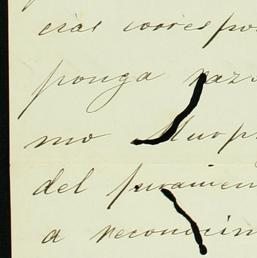 cial corres
ponga raz
mo
del juramen
a reconocim